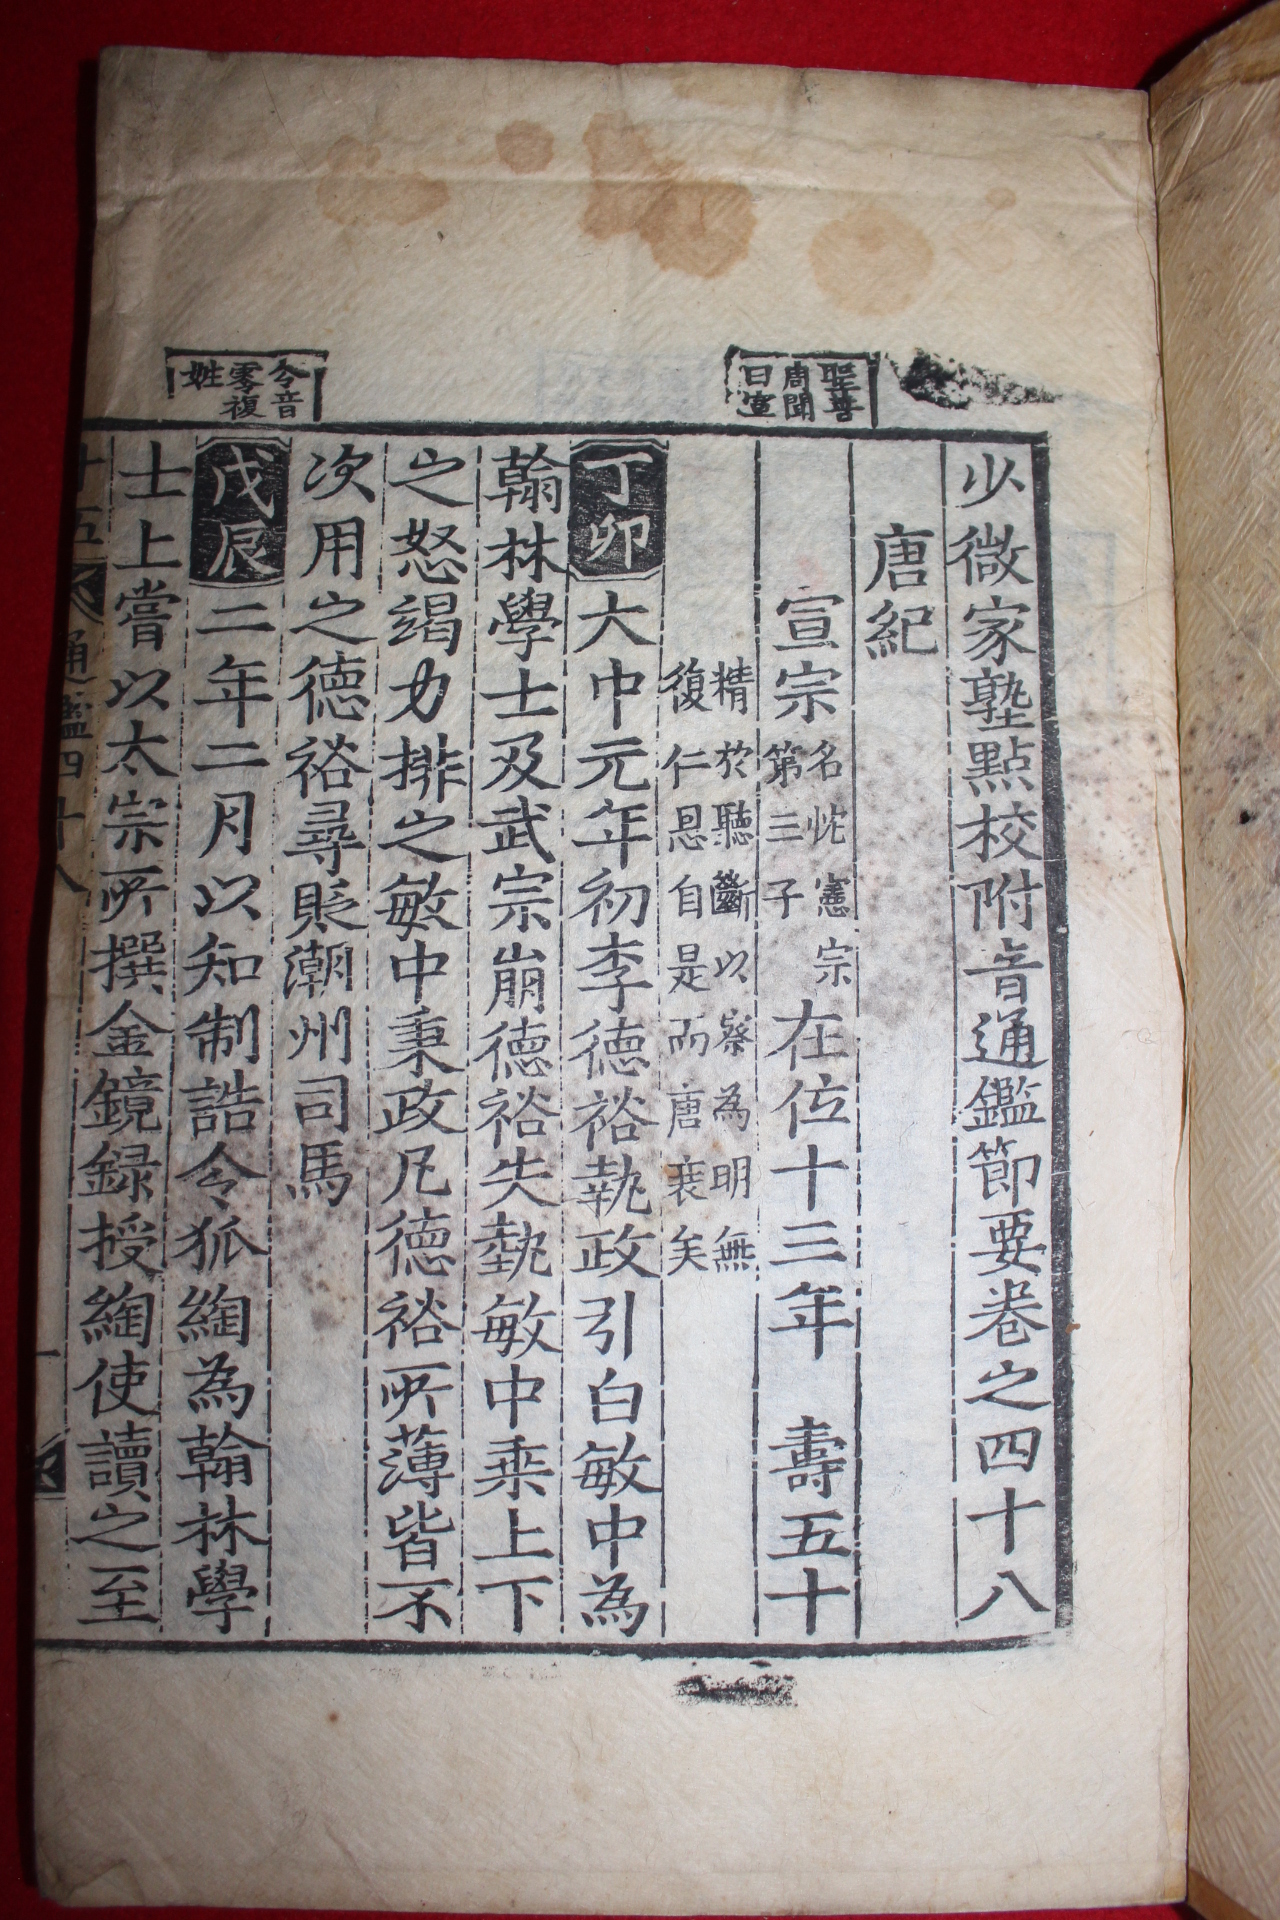 少微家塾點校附音通鑑節要卷之四十八
唐紀
聖善周聞曰宣
宣宗名忱憲宗第三子在位十三年 壽五十
精於聽斷以察為明無
復仁恩自是而唐衰矣
丁卯大中元年初李德裕執政引白敏中為
翰林學士及武宗崩德裕失埶敏中乘上下
之怒竭力排之敏中秉政凡德裕所薄皆不
次用之德裕尋貶潮州司馬
令音零複姓
戊辰二年二月以知制誥令狐綯為翰林學
士上嘗以太宗所撰金鏡録授綯使讀之至
十五
通鑑四十八
一